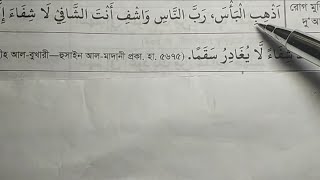 اَذْهِبِ الْبَأْسَ، رَبَّ النَّاسِ وَاشْفِ أَنْتَ الشَّافِيْ لَا شِفَاءَ
রোগ মু
দু'আ
شِفَاءً لَّا يُغَادِرُ سَقَمًا. (হীহ আল-বুখারী—হুসাইন আল-মাদানী প্রকা. হা. ৫৬৭৫)